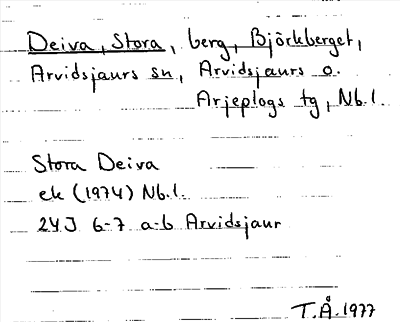 Deiva, Stora, berg, Björkberget,
Arvidsjaurs sn, Arvidsjaurs o.
Arjeplogs tg, Nb.l.
Stora Deiva
ek (1974) Nb.l.
24J 6-7 a-b Arvidsjaur
T.Å. 1977